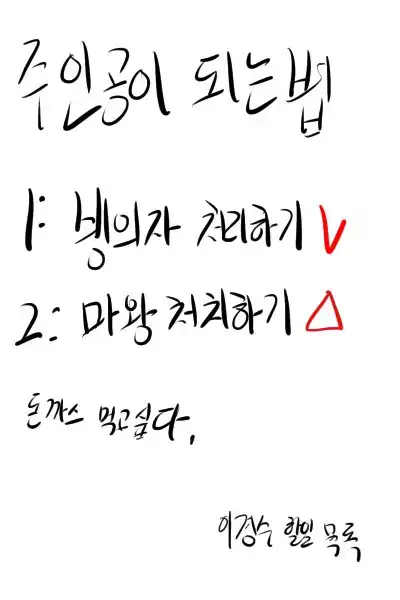 주인공이 되는법
1: 빙의자 처리하기 V
2: 마왕 처치하기 △
돈까스 먹고싶다,
이경수 할일 목록